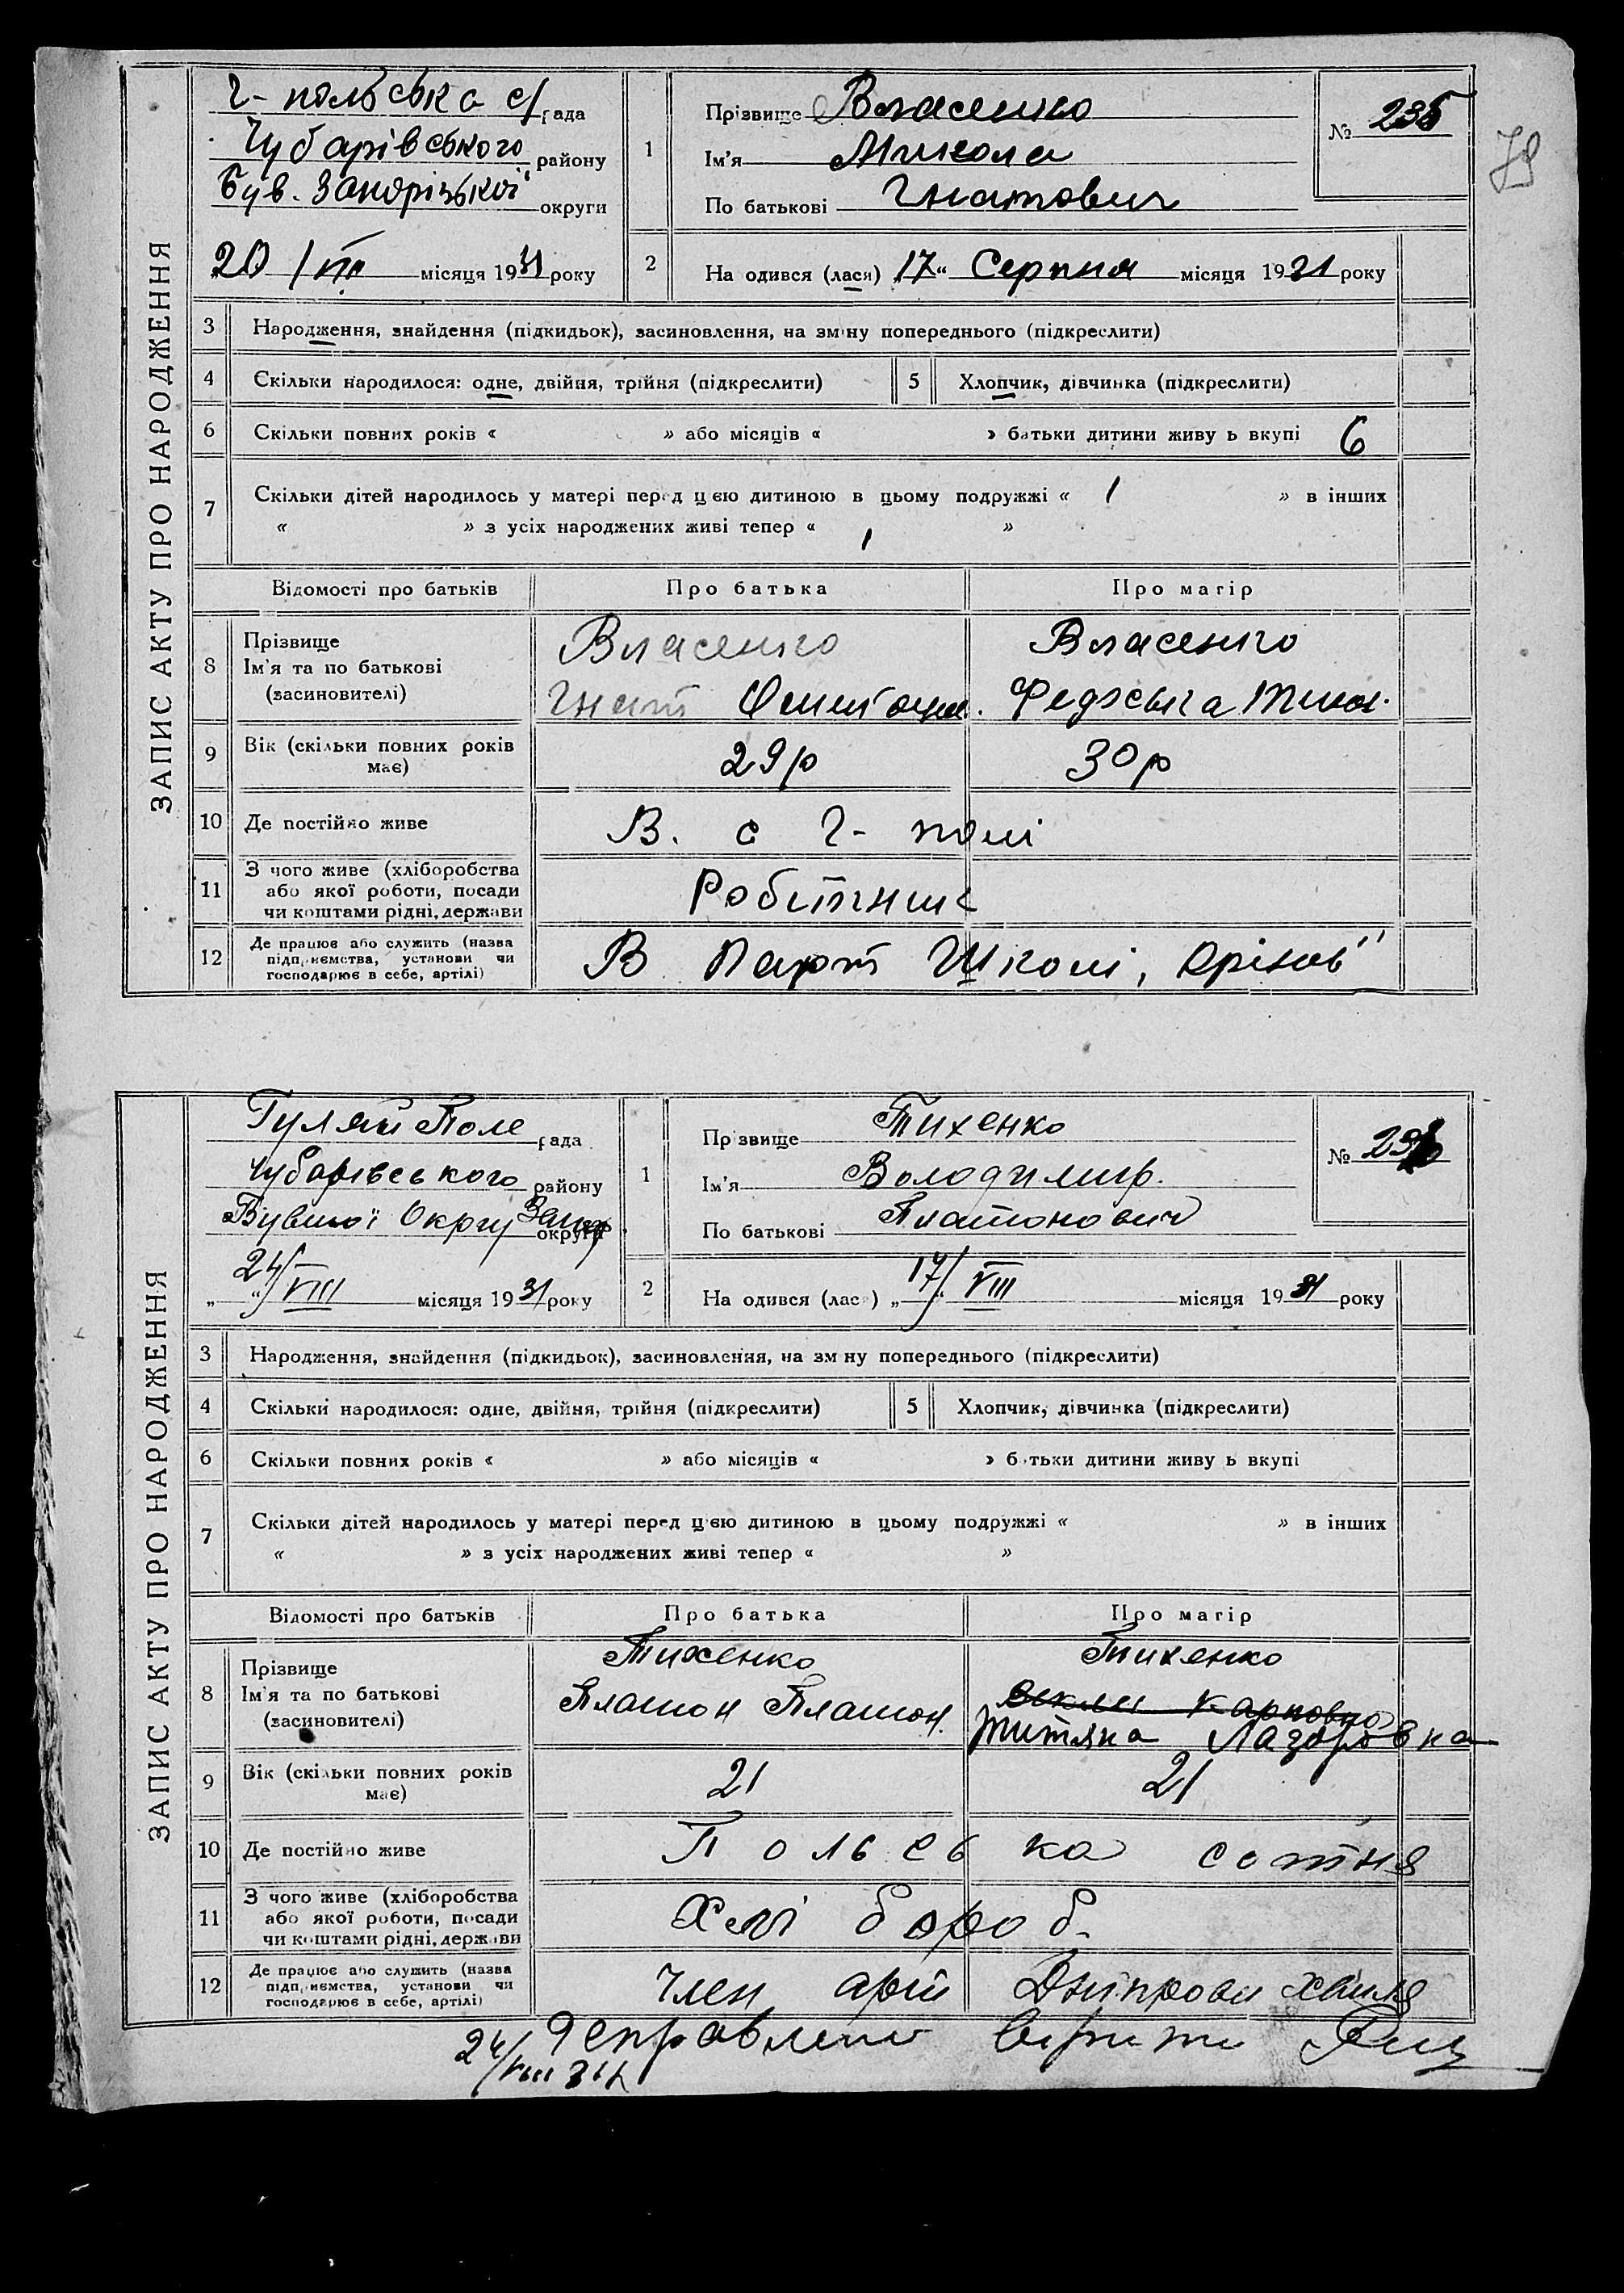 79
ЗАПИС АКТУ ПРО НАРОДЖЕННЯ
Г-польська с/рада
Чубарівського району
Був. Запорізької округи
20/VIII місяця 1931 року
1 Прізвище Власенко
Ім'я Микола
По батькові Гнатович
№ 235
2 На одився (лася) 17 " Серпня місяця 1931 року
3 Народження, знайдення (підкидьок), засиновлення, на зміну попереднього (підкреслити)
4 Скільки народилося: одне, двійня, трійня (підкреслити) 5 Хлопчик, дівчинка (підкреслити)
6 Скільки повних років « » або місяців « » батьки дитини живу ь вкупі 6
7 Скільки дітей народилось у матері перед цією дитиною в цьому подружжі « 1 » в інших
« » з усіх народжених живі тепер « 1 »
Відомості про батьків Про батька Про матір
8 Прізвище
Ім'я та по батькові
(засиновителі)
Власенко Власенко
Гнат Федоська
9 Вік (скільки повних років
має)
29р 30р
10 Де постійно живе В. с Г-полі
11 З чого живе (хліборобства
або якої роботи, посади
чи коштами рідні, держави
Робітник
12 Де працює або служить (назва
підприємства, установи чи
господарює в себе, артілі)
В Парт Школі, Оріхов
ЗАПИС АКТУ ПРО НАРОДЖЕННЯ
Гуляй Поле рада
Чубарівського району
Бувшої Округу Запор округи
„ 24/" VIII місяця 1931 року
1 Пр звище Тихенко
Ім'я Володимир.
По батькові Платонович
№
2 На одився (лас ) „ 17/" VIII місяця 1931 року
3 Народження, знайдення (підкидьок), засиновлення, на зм ну попереднього (підкреслити)
4 Скільки народилося: одне, двійня, трійня (підкреслити) 5 Хлопчик, дівчинка (підкреслити)
6 Скільки повних років « » або місяців « » батьки дитини живу ь вкупі
7 Скільки дітей народилось у матері перед цією дитиною в цьому подружжі « » в інших
« » з усіх народжених живі тепер « »
Відомості про батьків Про батька Про матір
8 Прізвище
Ім'я та по батькові
(засиновителі)
Тихенко Тихенко
Платон Платон. Карповна
Титяна Лазаровка
9 Вік (скільки повних років
має)
21 21
10 Де постійно живе Польська сотня
11 З чого живе (хліборобства
або якої роботи, посади
чи коштами рідні, держави
Хлібороб.
12 Де працює або служить (назва
підприємства, установи чи
господарює в себе, артілі)
Член арт Дніпрови хвиля
Исправлено вірити
24/VIII 31